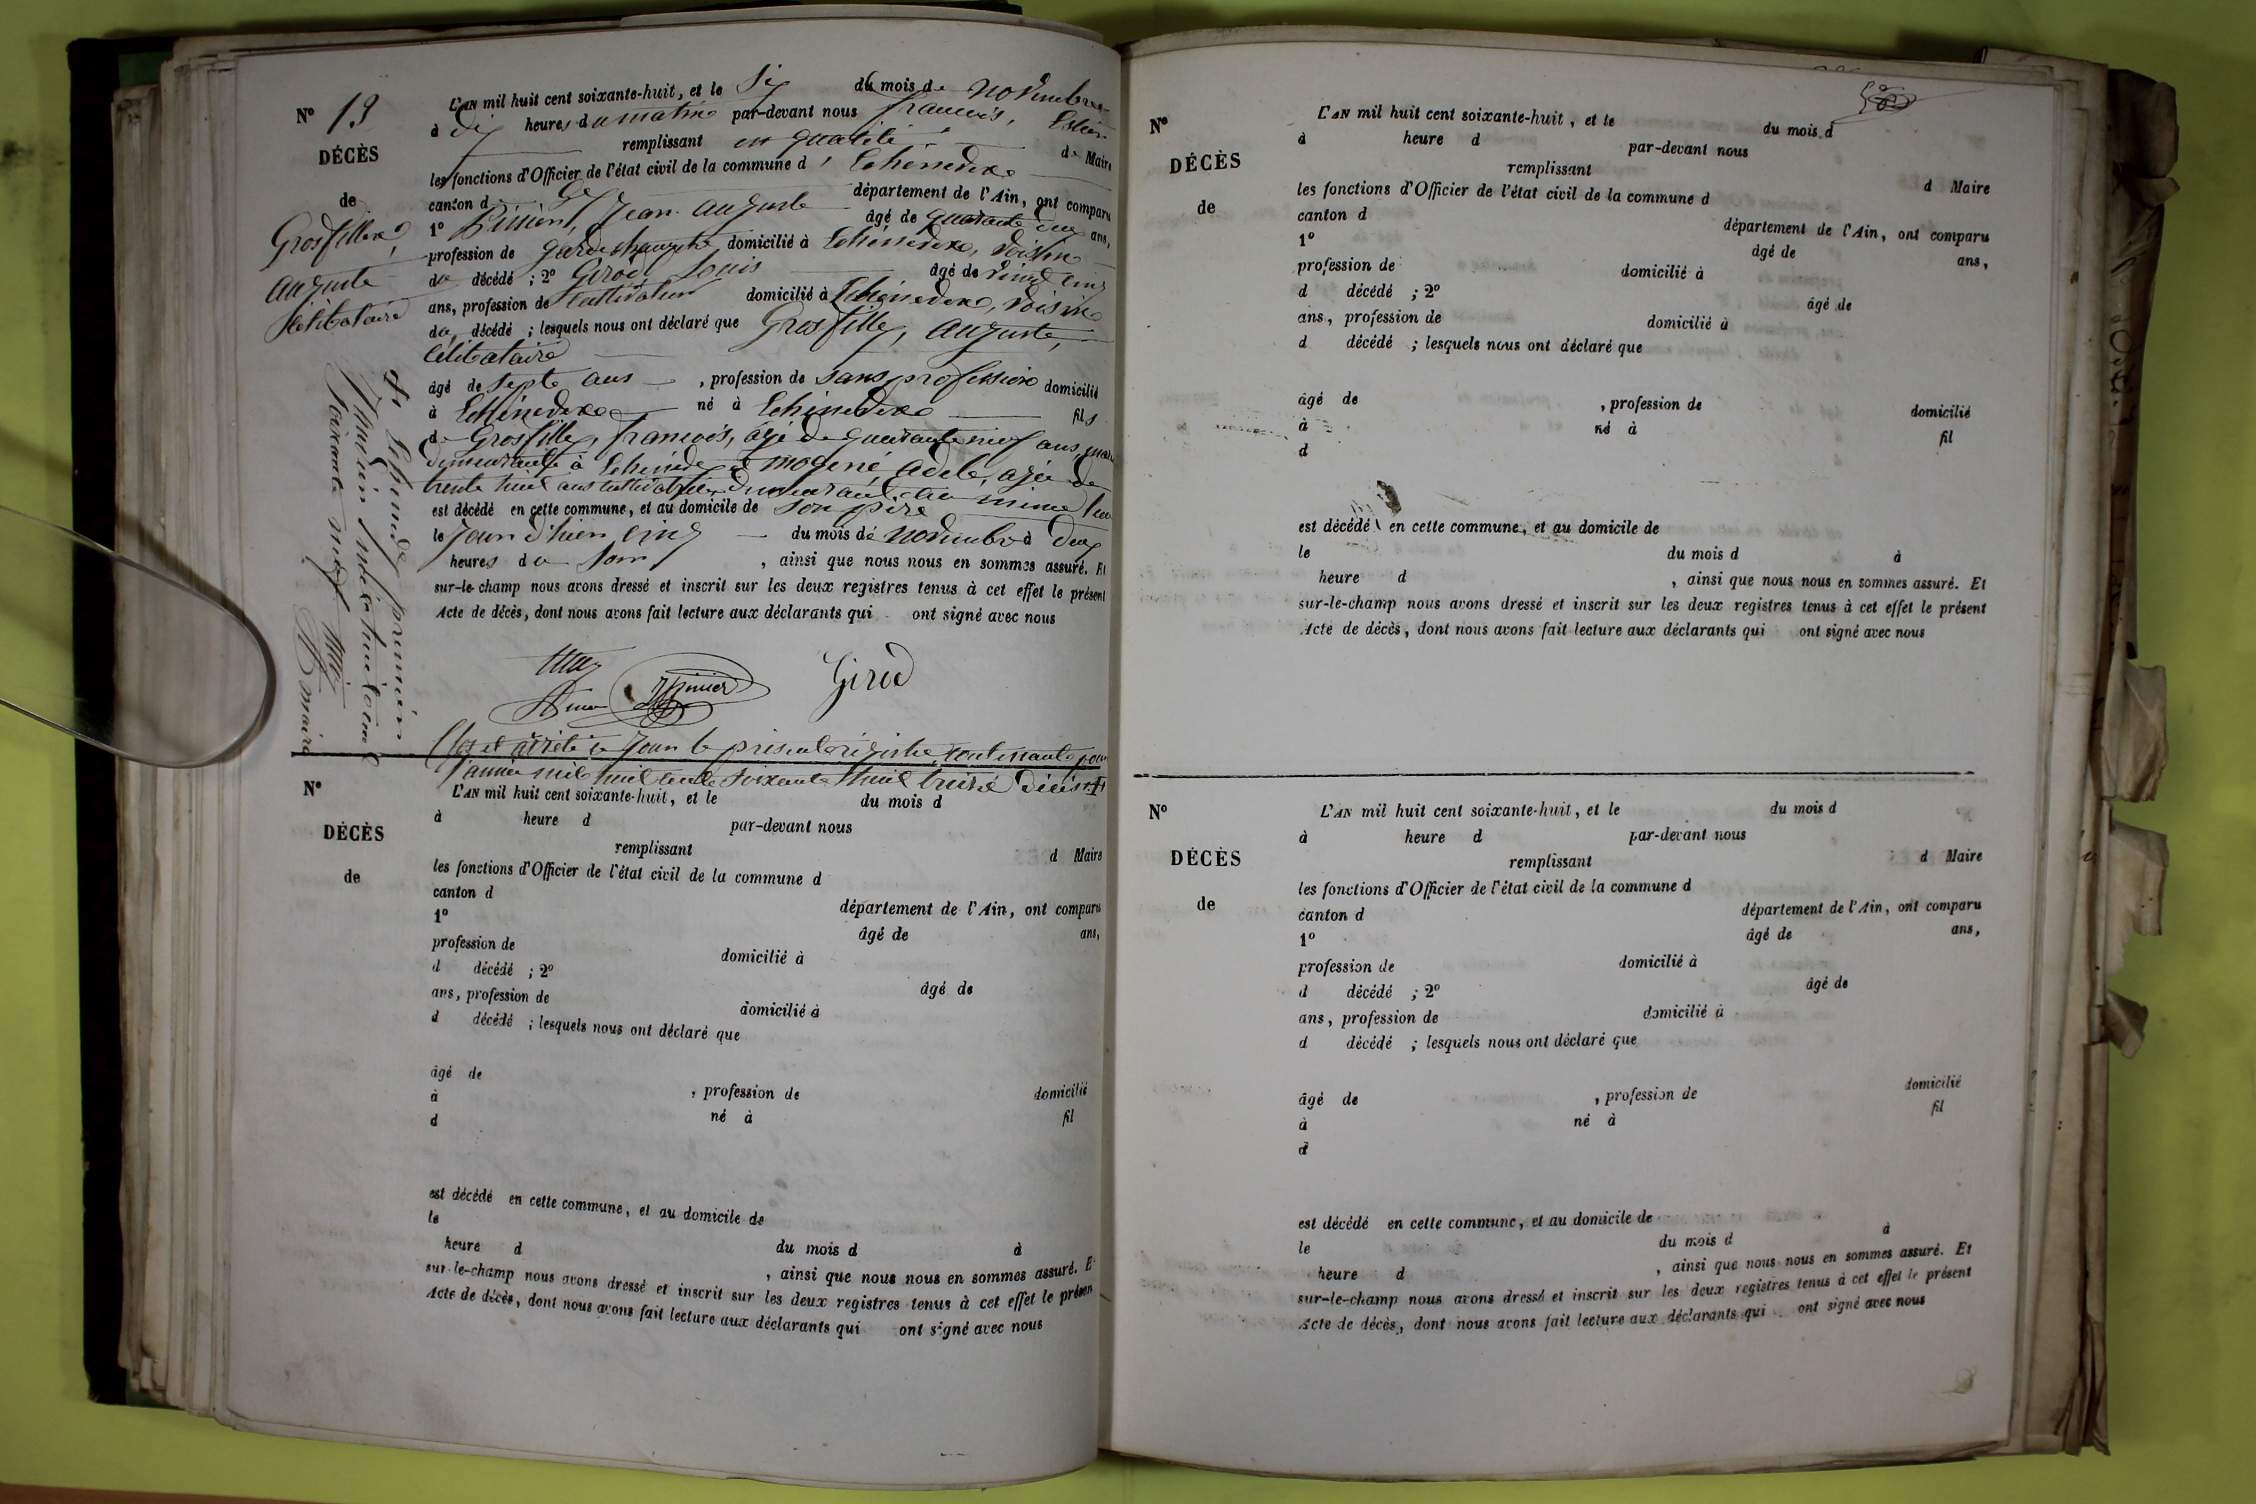 Nº 13
DÉCÈS
de
Grosfillex
Auguste
Célibataire
L'AN mil huit cent soixante-huit, et le Six du mois de novembre
à dix heures du matin par-devant nous françois,
remplissant en qualité de Maire
les fonctions d'Officier de l'état civil de la commune d'Echenevex
canton de Gex département de l'Ain, ont comparu
1º Jean Auguste âgé de quarante deux ans,
profession de garde champêtre domicilié à Echenevex, voisin
du décédé ; 2º Girod Louis âgé de vingt cinq
ans, profession de Cultivateur domicilié à Echenevex, voisin
du décédé ; lesquels nous ont déclaré que Grosfillex, Auguste,
Célibataire
âgé de sept ans , profession de Sans profession domicilié
à Echenevex né à Echenevex fils
de Grosfillex, françois, âgé de quarante neuf ans,
demeurant à Echenevex et adèle, agée de
trente huit ans cultivatrice demeurant au même lieu
est décédé en cette commune, et au domicile de son père
le Jour d'hier cinq du mois de novembre à deux
heures du Soir , ainsi que nous nous en sommes assuré. Et
sur-le-champ nous avons dressé et inscrit sur les deux registres tenus à cet effet le présent
Acte de décès, dont nous avons fait lecture aux déclarants qui ont signé avec nous
Girod
Clos et arrêté ce Jour le présent régistre, contenant pour
l'année mil huit cent Soixante huit treize décès
à Echenevex premier
Janvier mil huit cent
Soixante neuf
maire
Nº
DÉCÈS
de
L'AN mil huit cent soixante-huit, et le du mois d
à heure d par-devant nous
remplissant d Maire
les fonctions d'Officier de l'état civil de la commune d
canton d département de l'Ain, ont comparu
1º âgé de ans,
profession de domicilié à
d décédé ; 2º âgé de
ans, profession de domicilié à
d décédé ; lesquels nous ont déclaré que
âgé de , profession de domicilié
à né à fil
d
est décédé en cette commune, et au domicile de
le du mois d à
heure d , ainsi que nous nous en sommes assuré. E
sur-le-champ nous avons dressé et inscrit sur les deux registres tenus à cet effet le présen
Acte de décès, dont nous avons fait lecture aux déclarants qui ont signé avec nous
Nº
DÉCÈS
de
L'AN mil huit cent soixante-huit, et le du mois d
à heure d par-devant nous
remplissant d Maire
les fonctions d'Officier de l'état civil de la commune d
canton d département de l'Ain, ont comparu
1º âgé de ans,
profession de domicilié à
d décédé ; 2º âgé de
ans, profession de domicilié à
d décédé ; lesquels nous ont déclaré que
âgé de , profession de domicilié
à né à fil
d
est décédé en cette commune, et au domicile de
le du mois d à
heure d , ainsi que nous nous en sommes assuré. Et
sur-le-champ nous avons dressé et inscrit sur les deux registres tenus à cet effet le présent
Acte de décès, dont nous avons fait lecture aux déclarants qui ont signé avec nous
Nº
DÉCÈS
de
L'AN mil huit cent soixante-huit, et le du mois d
à heure d par-devant nous
remplissant d Maire
les fonctions d'Officier de l'état civil de la commune d
canton d département de l'Ain, ont comparu
1º âgé de ans,
profession de domicilié à
d décédé ; 2º âgé de
ans, profession de domicilié à
d décédé ; lesquels nous ont déclaré que
âgé de , profession de domicilié
à né à fil
d
est décédé en cette commune, et au domicile de
le du mois d à
heure d , ainsi que nous nous en sommes assuré. Et
sur-le-champ nous avons dressé et inscrit sur les deux registres tenus à cet effet le présent
Acte de décès, dont nous avons fait lecture aux déclarants qui ont signé avec nous